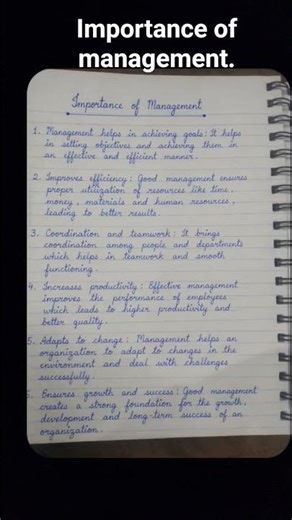 Importance of
management.
Importance of Management
1. Management helps in achieving goals : It helps
in setting objectives and achieving them in
an effective and efficient manner.
2. Improves efficiency : Good management ensures
proper utilization of resources like time,
money, materials and human resources,
leading to better results.
3. Coordination and teamwork : It brings
coordination among people and departments
which helps in teamwork and smooth
functioning.
4. Increases productivity : Effective management
improves the performance of employees
which leads to higher productivity and
better quality.
5. Adapts to change : Management helps an
organization to adapt to changes in the
environment and deal with challenges
successfully.
Ensures growth and success : Good management
creates a strong foundation for the growth,
development and long-term success of an
organization.